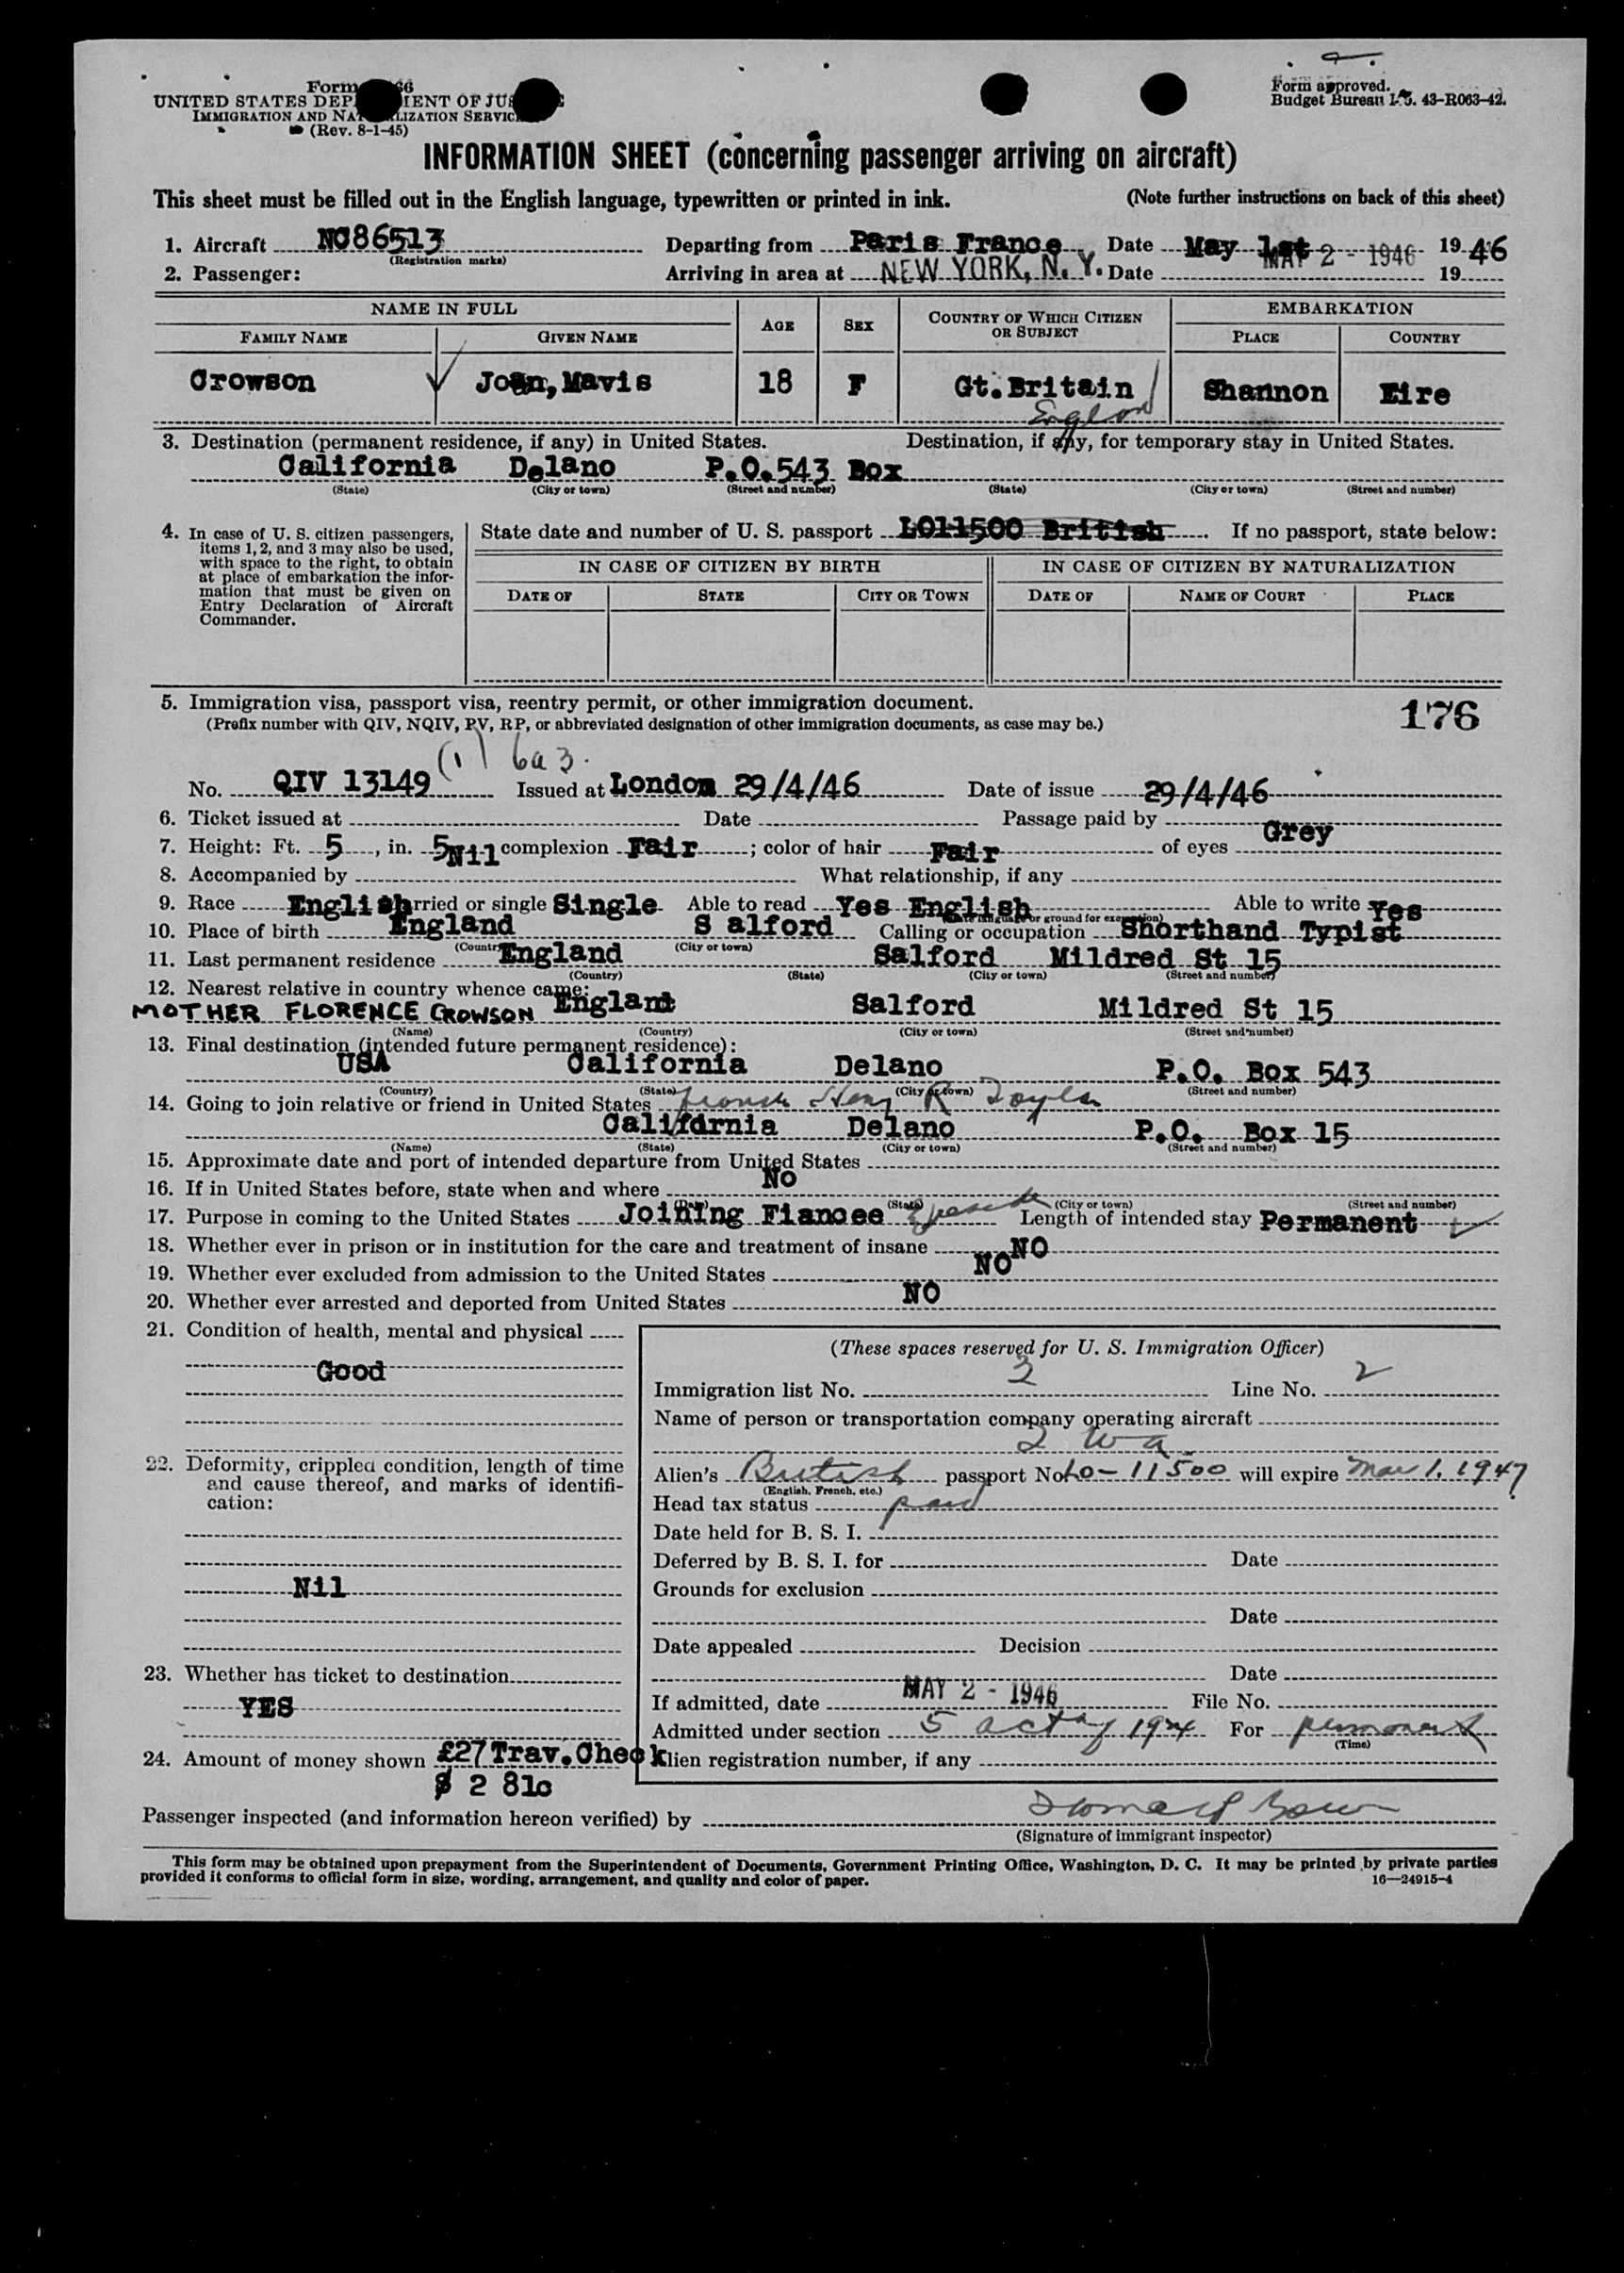 Form 66
UNITED STATES DEP IENT OF JUS E
IMMIGRATION AND NAT LIZATION SERVIC
(Rev. 8-1-45)
Form approved.
Budget Bureau 43-R063-42.
INFORMATION SHEET (concerning passenger arriving on aircraft)
This sheet must be filled out in the English language, typewritten or printed in ink. (Note further instructions on back of this sheet)
1. Aircraft NC86513 Departing from Paris France Date May 1st 19 46
(Registration marks)
2. Passenger: Arriving in area at NEW YORK, N. Y. Date MAY 2 - 1946 19
NAME IN FULL AGE SEX COUNTRY OF WHICH CITIZEN OR SUBJECT EMBARKATION
FAMILY NAME GIVEN NAME PLACE COUNTRY
Crowson Joan, Mavis 18 F Gt. Britain Shannon Eire
3. Destination (permanent residence, if any) in United States. Destination, if any, for temporary stay in United States.
California Delano P.O. 543 Box
(State) (City or town) (Street and number) (State) (City or town) (Street and number)
4. In case of U. S. citizen passengers, items 1, 2, and 3 may also be used, with space to the right, to obtain at place of embarkation the information that must be given on Entry Declaration of Aircraft Commander.
State date and number of U. S. passport LO11500 British. If no passport, state below:
IN CASE OF CITIZEN BY BIRTH IN CASE OF CITIZEN BY NATURALIZATION
DATE OF STATE CITY OR TOWN DATE OF NAME OF COURT PLACE
5. Immigration visa, passport visa, reentry permit, or other immigration document.
(Prefix number with QIV, NQIV, PV, RP, or abbreviated designation of other immigration documents, as case may be.)
176
(1) 6a3.
No. QIV 13149 Issued at London 29/4/46 Date of issue 29/4/46
6. Ticket issued at Date Passage paid by
7. Height: Ft. 5, in. 5 complexion Fair; color of hair Fair of eyes Grey
8. Accompanied by Nil What relationship, if any
9. Race English rried or single Single Able to read Yes English Able to write Yes
10. Place of birth England S alford Calling or occupation Shorthand Typist
(Country) (City or town)
11. Last permanent residence England Salford Mildred St 15
(Country) (State) (City or town) (Street and number)
12. Nearest relative in country whence came:
MOTHER FLORENCE CROWSON England Salford Mildred St 15
(Name) (Country) (City or town) (Street and number)
13. Final destination (intended future permanent residence):
USA California Delano P.O. Box 543
(Country) (State) (City or town) (Street and number)
14. Going to join relative or friend in United States
California Delano P.O. Box 15
(Name) (State) (City or town) (Street and number)
15. Approximate date and port of intended departure from United States
16. If in United States before, state when and where No
(Date) (State) (City or town) (Street and number)
17. Purpose in coming to the United States Joining Fiancee Length of intended stay Permanent
18. Whether ever in prison or in institution for the care and treatment of insane NO
19. Whether ever excluded from admission to the United States NO
20. Whether ever arrested and deported from United States NO
21. Condition of health, mental and physical
Good
22. Deformity, crippled condition, length of time and cause thereof, and marks of identification:
Nil
23. Whether has ticket to destination
YES
24. Amount of money shown £27 Trav. Check
$ 2 81c
(These spaces reserved for U. S. Immigration Officer)
Immigration list No. 3 Line No. 2
Name of person or transportation company operating aircraft
Alien's British passport No. LO-11500 will expire Mar 1, 1947
(English, French, etc.)
Head tax status paid
Date held for B. S. I.
Deferred by B. S. I. for Date
Grounds for exclusion
Date
Date appealed Decision
Date
If admitted, date MAY 2 - 1946 File No.
Admitted under section 5 act of 1924 For permanent
(Time)
lien registration number, if any
Passenger inspected (and information hereon verified) by
(Signature of immigrant inspector)
This form may be obtained upon prepayment from the Superintendent of Documents, Government Printing Office, Washington, D. C. It may be printed by private parties
provided it conforms to official form in size, wording, arrangement, and quality and color of paper.
16—24915-4